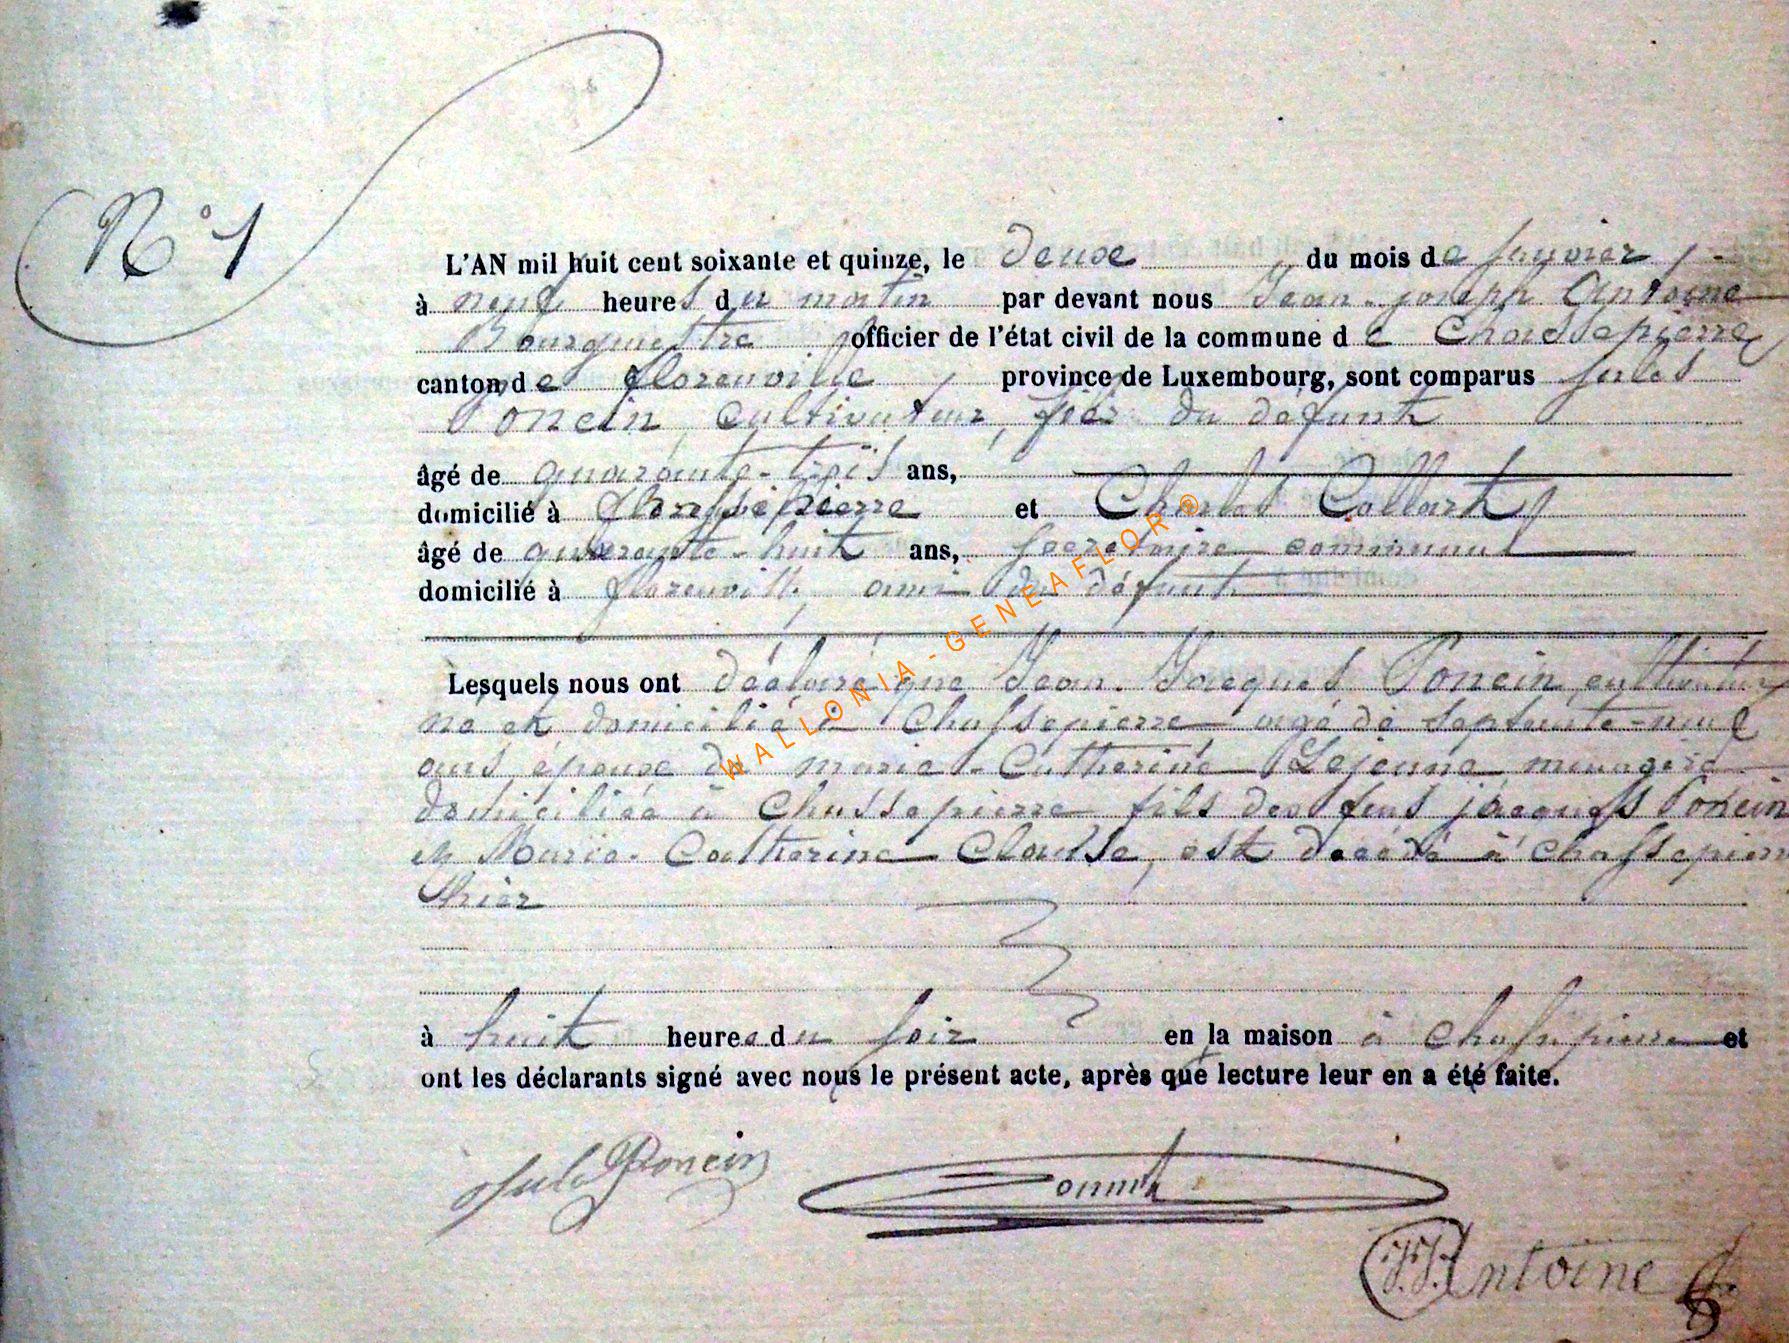 N° 1
L'AN mil huit cent soixante et quinze, le deux du mois de Janvier
à neuf heures du matin par devant nous Jean-joseph Antoine
Bourgmestre officier de l'état civil de la commune de Chassepierre
canton de florenville province de Luxembourg, sont comparus jules
Poncin, cultivateur, fils du défunt
âgé de quarante-trois ans,
domicilié à Chassepierre et Charles Collart
âgé de quarante-huit ans, secretaire communal
domicilié à florenville, ami du défunt
Lesquels nous ont déclaré que Jean-Jacques Poncin, cultivateur
né et domicilié à Chassepierre agé de septante-neuf
ans, époux de marie-Catherine Lejeune, menagère
domiciliée à Chassepierre fils des feus jacques Poncin
et Marie-Catherine Clausse, est decédé à Chassepierre
hier
à huit heures du soir en la maison à Chassepierre et
ont les déclarants signé avec nous le présent acte, après que lecture leur en a été faite.
Jules Poncin
J.J. Antoine
WALLONIA-GENEAFLOR®